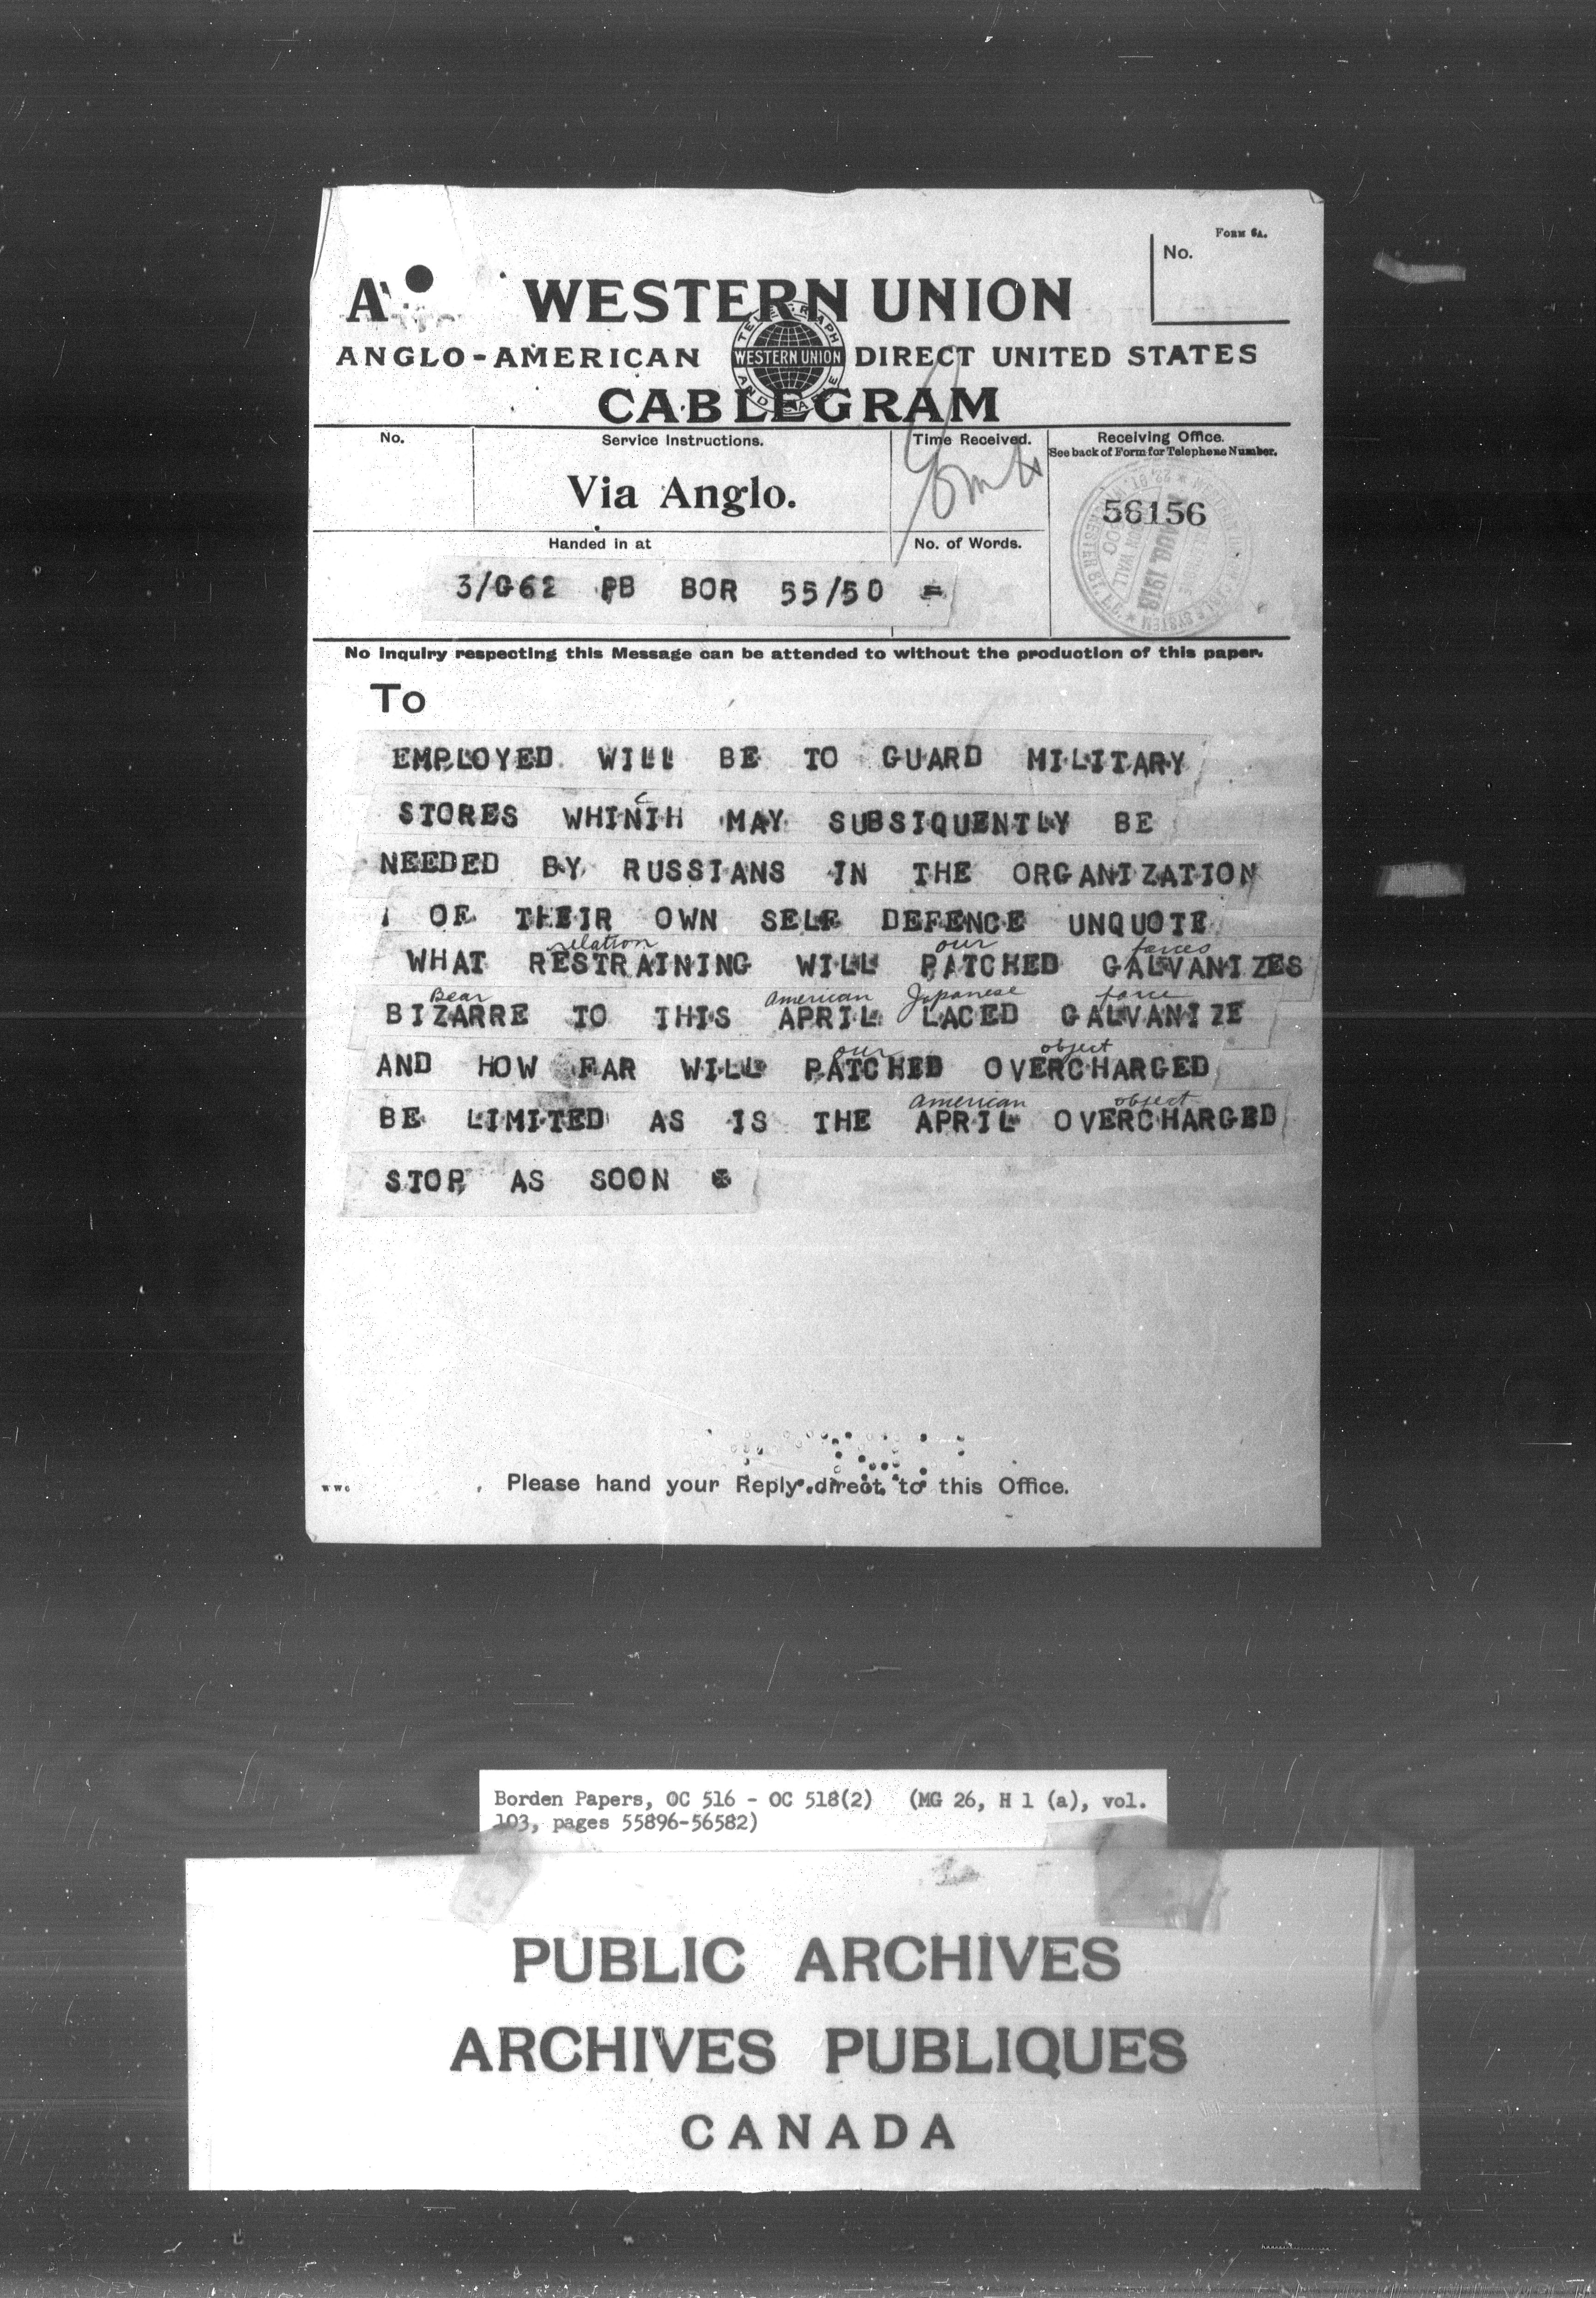 Form 6A.
No.
WESTERN UNION
TELEGRAPH AND CABLE
WESTERN UNION
ANGLO-AMERICAN DIRECT UNITED STATES
CABLEGRAM
No. Service Instructions. Time Received. Receiving Office.
See back of Form for Telephone Number.
Via Anglo.
56156
AUG. 1918
Handed in at No. of Words.
3/G62 PB BOR 55/50 =
No inquiry respecting this Message can be attended to without the production of this paper.
To
EMPLOYED WILL BE TO GUARD MILITARY
c
STORES WHINIH MAY SUBSIQUENTLY BE
NEEDED BY RUSSIANS IN THE ORGANIZATION
OF THEIR OWN SELF DEFENCE UNQUOTE
relation our forces
WHAT RESTRAINING WILL PATCHED GALVANIZES
Bear American Japanese force
BIZARRE TO THIS APRIL LACED GALVANIZE
our object
AND HOW FAR WILL PATCHED OVERCHARGED
American object
BE LIMITED AS IS THE APRIL OVERCHARGED
STOP AS SOON
Please hand your Reply direct to this Office.
Borden Papers, OC 516 - OC 518(2) (MG 26, H 1 (a), vol.
103, pages 55896-56582)
PUBLIC ARCHIVES
ARCHIVES PUBLIQUES
CANADA